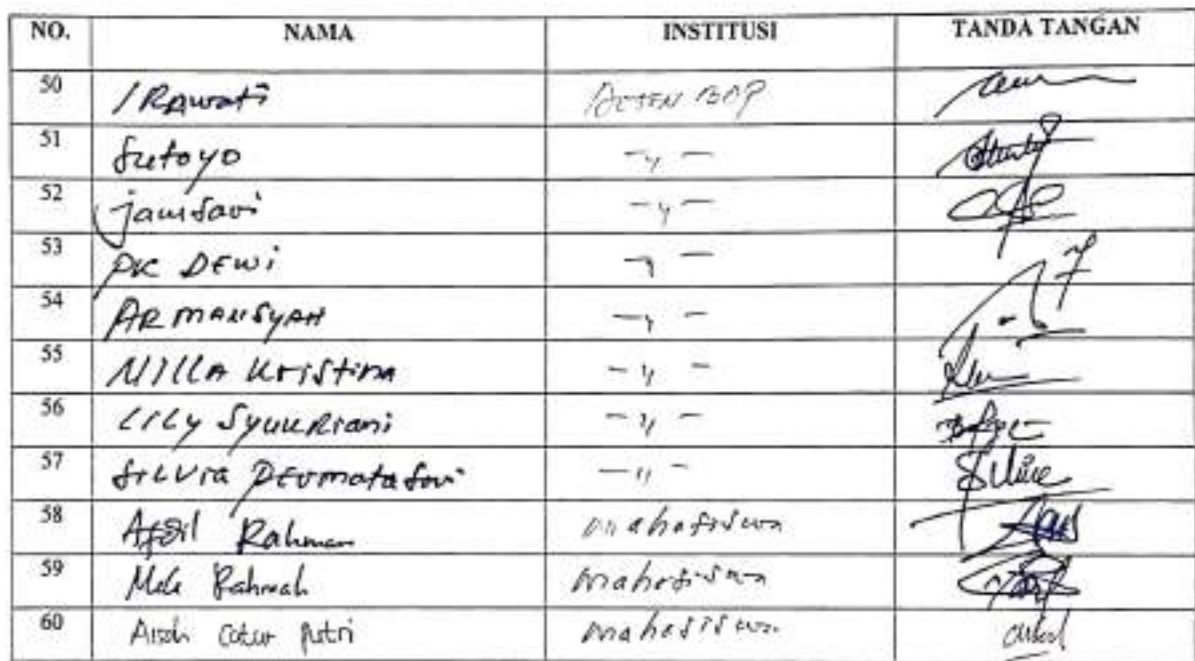 NO. NAMA INSTITUSI TANDA TANGAN
50 IRawati DOSEN BDP
51 Sutoyo -〃-
52 Jamsari -〃-
53 PK DEWI -〃-
54 ARMANSYAH -〃-
55 NILLA Kristina -〃-
56 LILY SyukRiani -〃-
57 SILVIA PERmata Sari -〃-
58 Afdil Rahman mahasiswa
59 Rahmah mahasiswa
60 Aisah Catur Putri mahasiswa